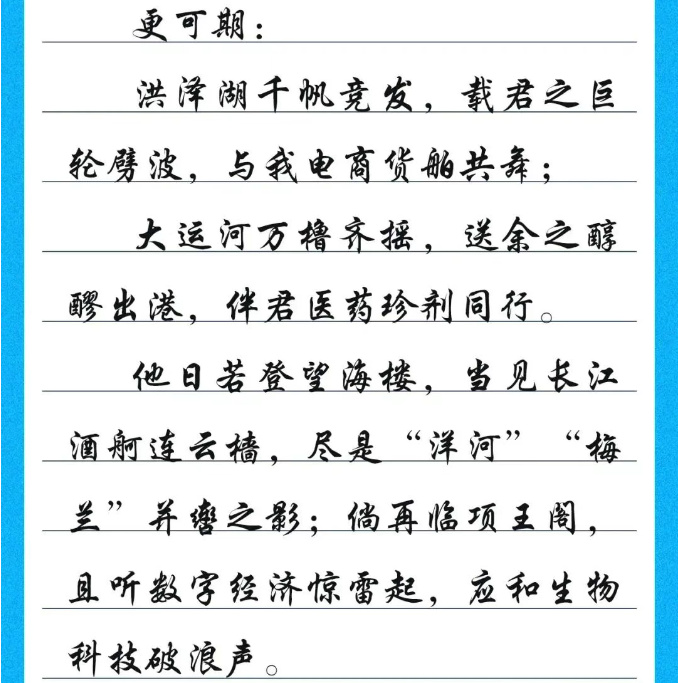 更可期：
洪泽湖千帆竞发，载君之巨
轮劈波，与我电商货舶共舞；
大运河万橹齐摇，送余之醇
醪出港，伴君医药珍剂同行。
他日若登望海楼，当见长江
酒舸连云樯，尽是“洋河”“梅
兰”并辔之影；倘再临项王阁，
且听数字经济惊雷起，应和生物
科技破浪声。